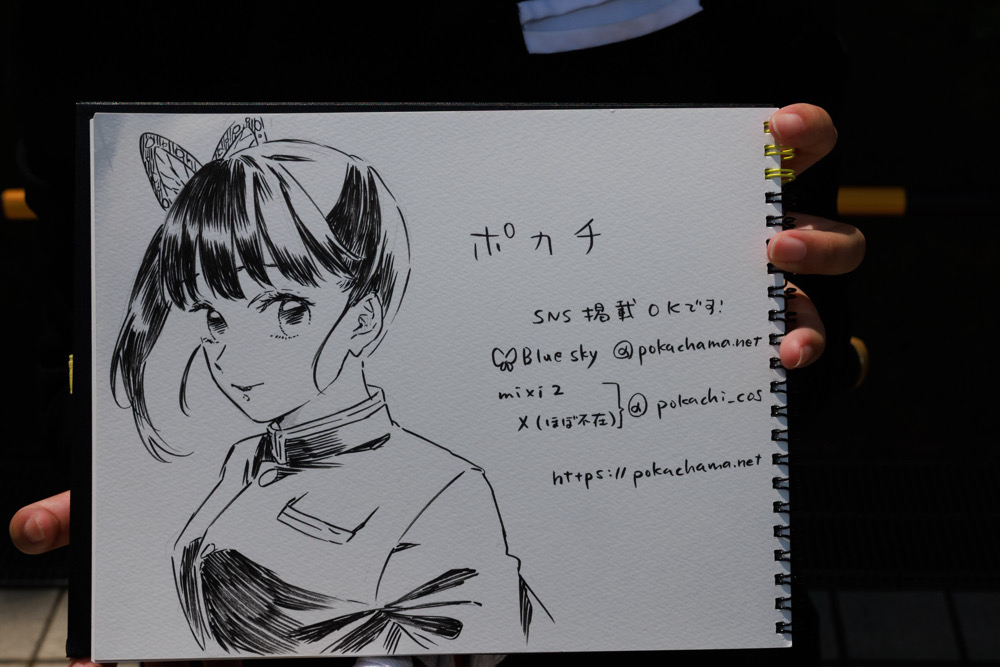 ポカチ
SNS掲載OKです!
Bluesky @pokachama.net
mixi2
X(ほぼ不在)
@pokachi_cos
https://pokachama.net